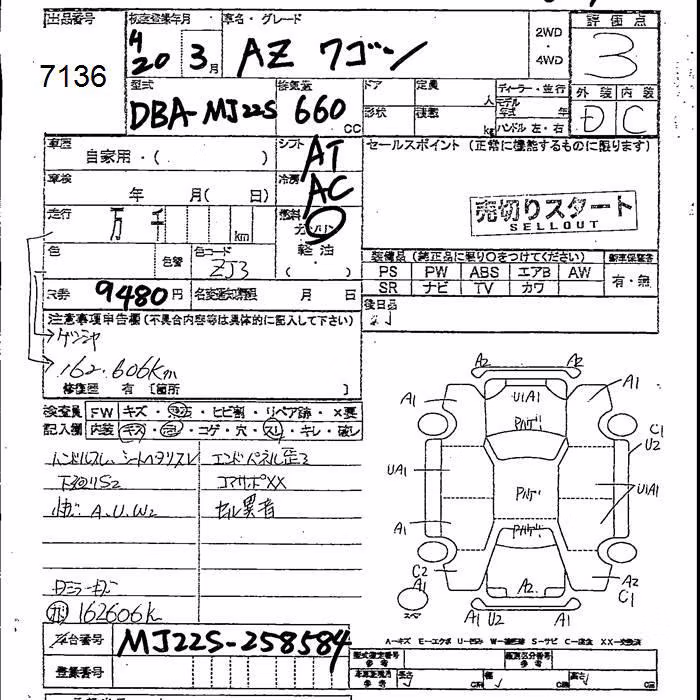 出品番号 初度登録年月 車名・グレード 2WD・4WD 評価点
7136 H20 3月 AZ ワゴン 3
型式 排気量 ドア 定員 人 ディーラー・並行 外装 内装
DBA-MJ22S 660 CC 形状 積数 kg モデル年式 年 ハンドル 左・右 D C
車歴 自家用・( ) シフト AT セールスポイント (正常に機能するものに限ります)
車検 年 月( 日) 冷房 AC
走行 万 千 km 燃料 ガソリン
売切りスタート
SELLOUT
色 色替 色コード ZJ3 軽油 ( )
装備品 (純正品に限り○をつけてください) 新車保証書
PS PW ABS エアB AW 有・無
SR ナビ TV カワ
リ券 9480円 名変期限 月 日 後日品
注意事項申告欄 (不具合内容等は具体的に記入して下さい)
162.606Km
修復歴 有 [箇所 ]
検査員 FW キズ・飛石・ヒビ割・リペア跡・×要
記入欄 内装 キズ・汚レ・コゲ・穴・スレ・キレ・破レ
ハンドルスレ シートヘタリスレ エンドパネル歪ミ
下廻りS2 コアサポXX
A.U.W2
162606k
車台番号 MJ22S-258584
登録番号
A2 A2
A1 U1A1 A1
パハゲ1
C1
U2
UA1 パハゲ1 U1A1
A1 パハゲ1
C2 A2 A2
C1
スペア A1 U2 A1
A-キズ E-エクボ U-凹み W-補修跡 S-サビ C-腐食 XX-交換済
型式指定番号 参考 類別区分番号 参考
長さ cm 幅 cm 高さ cm